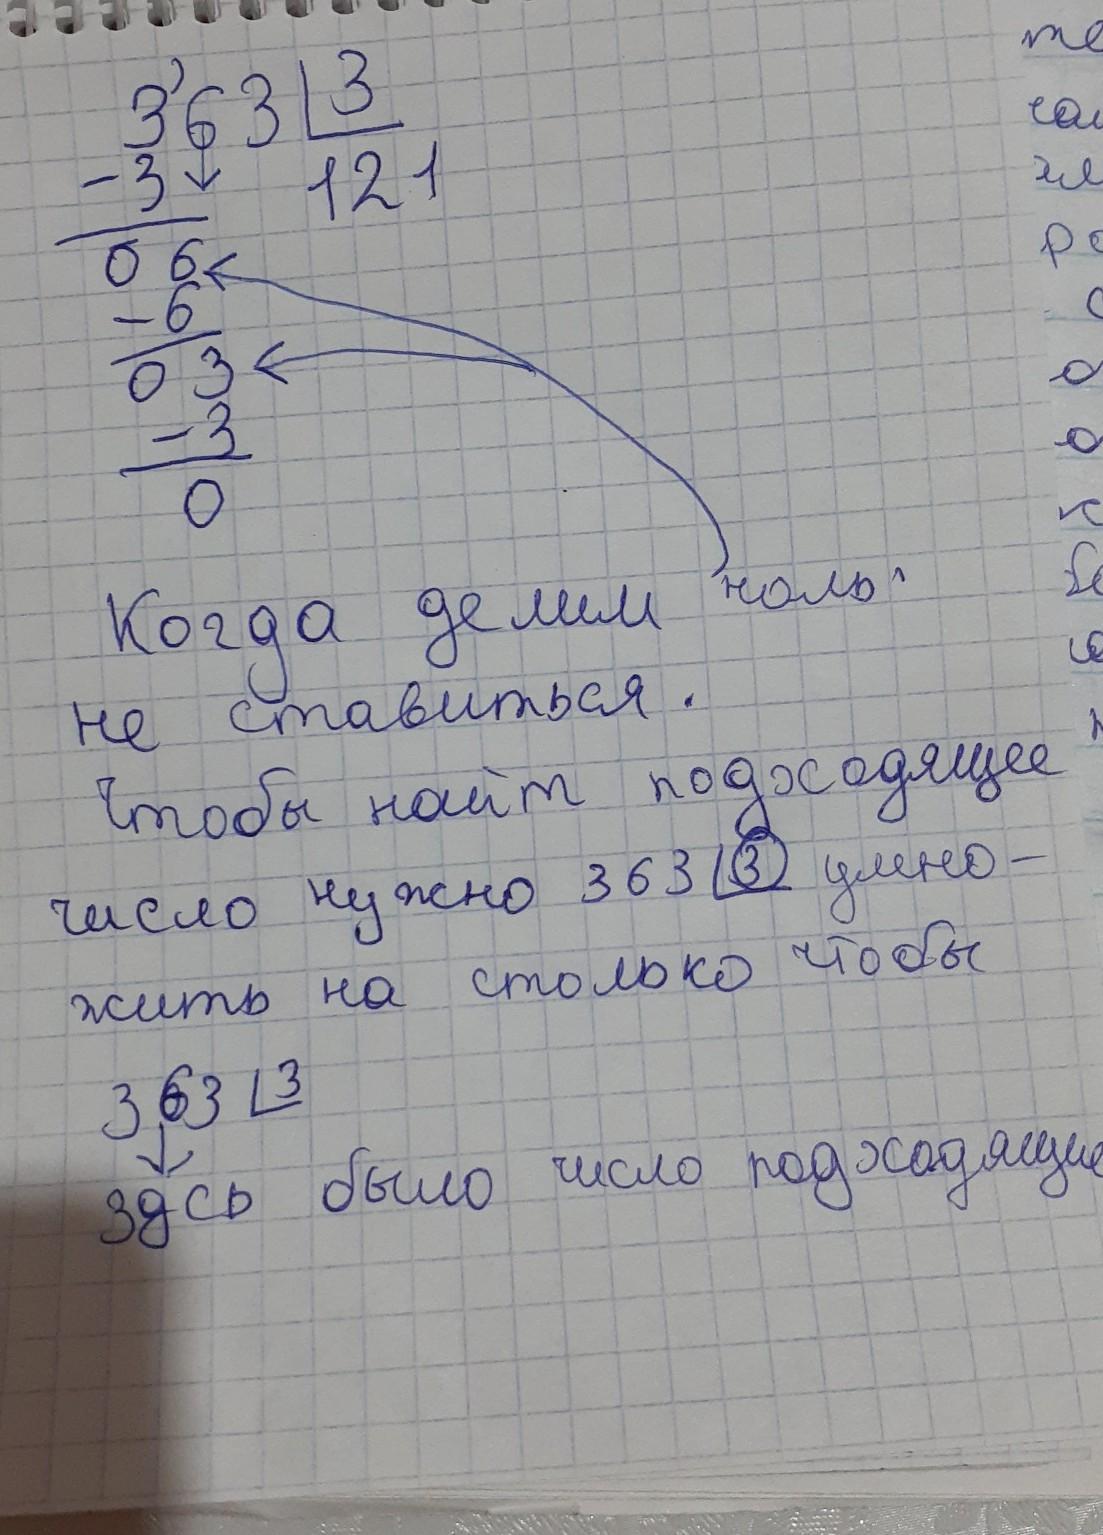 3'63 3
-3 121
06
-6
03
-3
0
Когда делим ноль
не ставиться.
Чтобы найт подходящее
число нужно 363 3 умно-
жить на столько чтобы
363 3
здсь было число подходящие